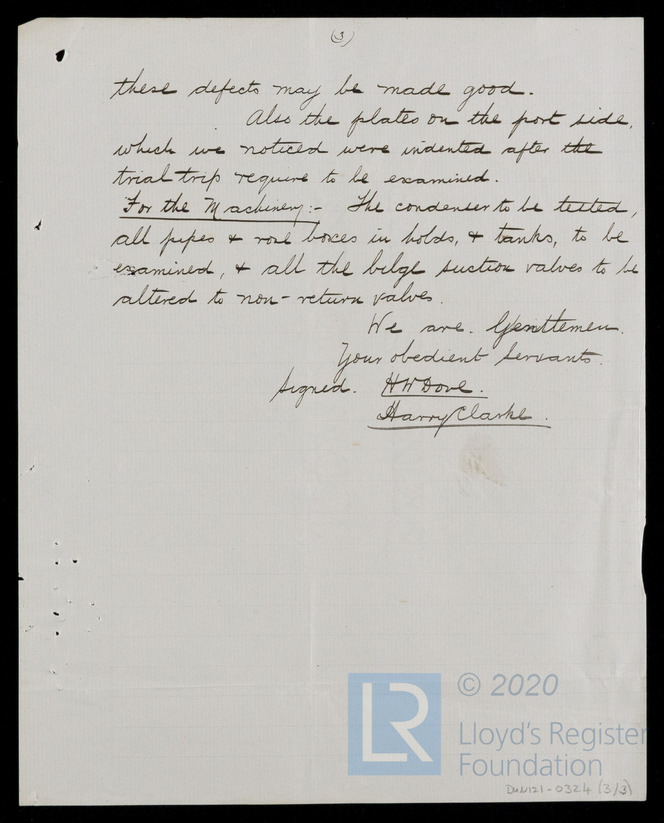 (3)
these defects may be made good.
Also the plates on the port side,
which we noticed were indented after the
trial trip require to be examined.
For the Machinery:- The condenser to be tested,
all pipes & rose boxes in holds, & tanks, to be
examined, & all the bilge suction valves to be
altered to non-return valves.
We are. Gentlemen.
Your obedient Servants.
Signed. HW Dove.
Harry Clarke.
LR
© 2020
Lloyd's Register
Foundation
DUN121-0324 (3/3)